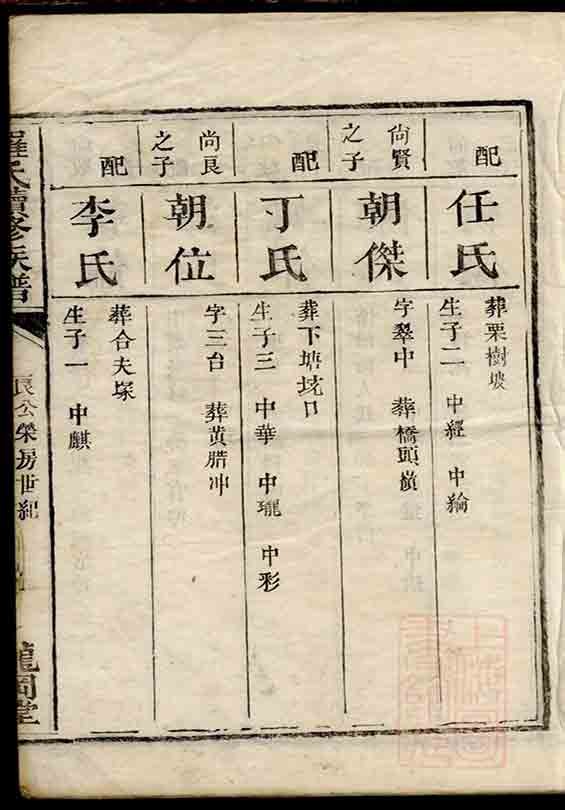 配
任氏
葬栗樹坡
生子二 中經 中綸
尚賢
之子
朝傑
字翠中 葬橋頭嶺
配
丁氏
葬下塘坑口
生子三 中華 中瓏 中彩
尚良
之子
朝位
字三台 葬黄腊冲
配
李氏
葬合夫塚
生子一 中麒
羅氏續修族譜
良公榮房世紀
龍岡堂